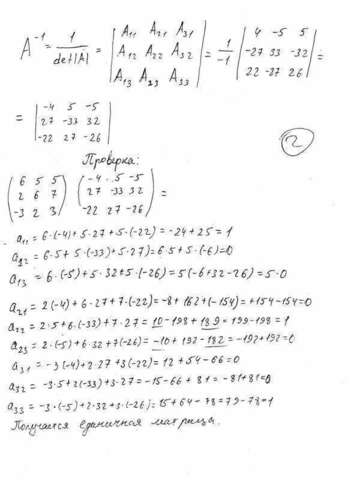 A⁻¹ = 1/det|A| = |A₁₁ A₂₁ A₃₁| = 1/-1 |4 -5 5| =
|A₁₂ A₂₂ A₃₂| |-27 33 -32|
|A₁₃ A₂₃ A₃₃| |22 -27 26|
= |-4 5 -5|
|27 -33 32|
|-22 27 -26|
2
Проверка:
(6 5 5) (-4 5 -5)
(2 6 7) (27 -33 32) =
(-3 2 3) (-22 27 -26)
a₁₁ = 6·(-4)+5·27+5·(-22) = -24+25 = 1
a₁₂ = 6·5+5·(-33)+5·27) = 6·5+5·(-6)=0
a₁₃ = 6·(-5)+5·32+5·(-26) = 5(-6+32-26) = 5·0
a₂₁ = 2(-4)+6·27+7·(-22) = -8+162+(-154) = +154-154=0
a₂₂ = 2·5+6·(-33)+7·27 = 10-198+189 = 199-198 = 1
a₂₃ = 2·(-5)+6·32+7(-26) = -10+192-182 = -192+192=0
a₃₁ = -3(-4)+2·27+3(-22) = 12+54-66=0
a₃₂ = -3·5+2(-33)+3·27 = -15-66+81 = -81+81=0
a₃₃ = -3·(-5)+2·32+3·(-26) = 15+64-78=79-78=1
Получается единичная матрица.